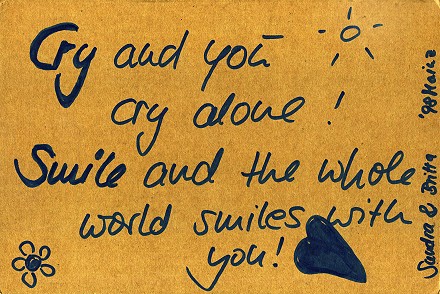 Cry and you
cry alone!
Smile and the whole
world smiles with
you!
Sandra & Britta '98 Mainz